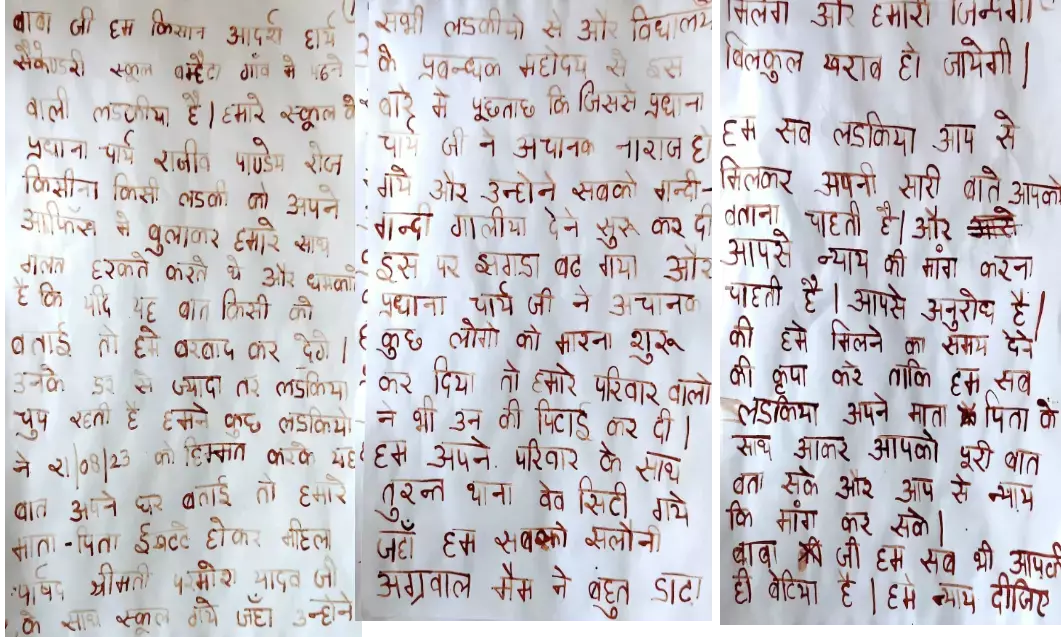 बाबा जी हम किसान आदर्श हार्य
सैकेण्डरी स्कूल बम्हैटा गाँव मे पढने
वाली लडकीया है। हमारे स्कूल के
प्रधाना चार्य राजीव पाण्डेय रोज
किसीना किसी लडकी को अपने
आफिस मे बुलाकर हमारे साथ
गलत हरकते करते थे और धमकाते
है कि यदि यह बात किसी को
बताई तो हमे बरबाद कर देगे।
उनके डर से ज्यादा तर लडकिया
चुप रहती है हमने कुछ लडकियो
ने 21/08/23 को हिम्मत करके यह
बात अपने घर बताई तो हमारे
माता-पिता ईखटटे होकर महिला
पार्षद श्रीमती परमोश यादव जी
के साथ स्कूल गये जँहा उन्होने
सभी लडकीयो से और विधालय
के प्रबन्धक महोदय से इस
बारे मे पूछताछ कि जिससे प्रधाना
चार्य जी ने अचानक नाराज हो
गये और उन्होने सबको गन्दी-
गन्दी गालीया देने सुरू कर दी
इस पर झगडा बढ गया और
प्रधाना चार्य जी ने अचानक
कुछ लोगो को मारना शुरू
कर दिया तो हमारे परिवार वालो
ने भी उन की पिटाई कर दी।
हम अपने परिवार के साथ
तुरन्त थाना वेव सिटी गये
जहाँ हम सबको सलौनी
अग्रवाल मैम ने बहुत डाटा
मिलेगा और हमारी जिन्दगी
बिलकुल खराब हो जायेगी।
हम सब लडकिया आप से
मिलकर अपनी सारी बाते आपको
बताना चाहती है। और
आपसे न्याय की मांग करना
चाहती है। आपसे अनुरोध है।
की हमे मिलने का समय देने
की कृपा करे ताकि हम सब
लडकिया अपने माता पिता के
साथ आकर आपको पूरी बात
बता सके और आप से न्याय
कि मांग कर सके।
बाबा जी हम सब भी आपकी
ही बेटिया है। हमे न्याय दीजिए